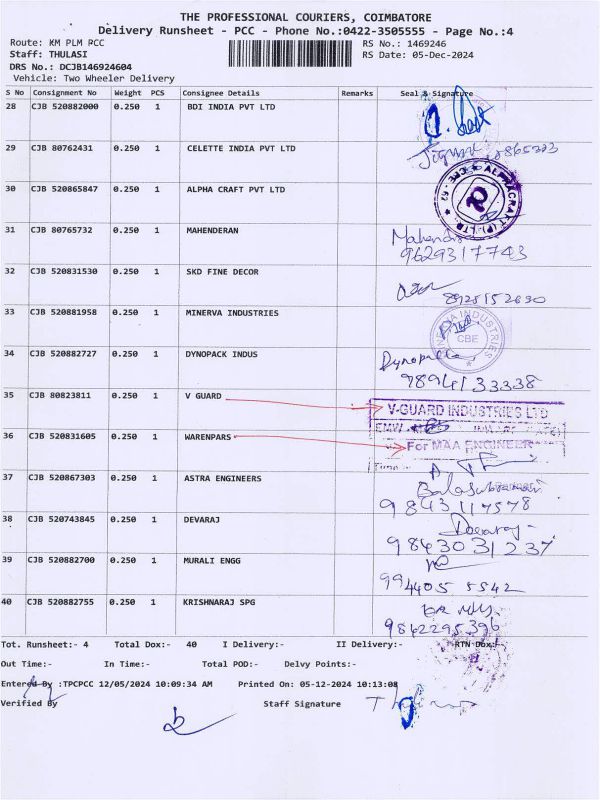 THE PROFESSIONAL COURIERS, COIMBATORE
Delivery Runsheet - PCC - Phone No.:0422-3505555 - Page No.:4
Route: KM PLM PCC
RS No.: 1469246
Staff: THULASI
RS Date: 05-Dec-2024
DRS No.: DCJB146924604
Vehicle: Two Wheeler Delivery
S No Consignment No Weight PCS Consignee Details Remarks Seal & Signature
28 CJB 520882000 0.250 1 BDI INDIA PVT LTD
29 CJB 80762431 0.250 1 CELETTE INDIA PVT LTD
30 CJB 520865847 0.250 1 ALPHA CRAFT PVT LTD
31 CJB 80765732 0.250 1 MAHENDERAN
9629317743
32 CJB 520831530 0.250 1 SKD FINE DECOR
33 CJB 520881958 0.250 1 MINERVA INDUSTRIES
CBE
34 CJB 520882727 0.250 1 DYNOPACK INDUS
9894133338
35 CJB 80823811 0.250 1 V GUARD
V-GUARD INDUSTRIES LTD
36 CJB 520831605 0.250 1 WARENPARS
For MAA ENGINEER
37 CJB 520867303 0.250 1 ASTRA ENGINEERS
9843117578
38 CJB 520743845 0.250 1 DEVARAJ
Devaraj
9843031237
39 CJB 520882700 0.250 1 MURALI ENGG
994405 5542
40 CJB 520882755 0.250 1 KRISHNARAJ SPG
9842295396
Tot. Runsheet:- 4 Total Dox:- 40 I Delivery:- II Delivery:- RTN Dox:-
Out Time:- In Time:- Total POD:- Delvy Points:-
Entered By :TPCPCC 12/05/2024 10:09:34 AM Printed On: 05-12-2024 10:13:08
Verified By Staff Signature